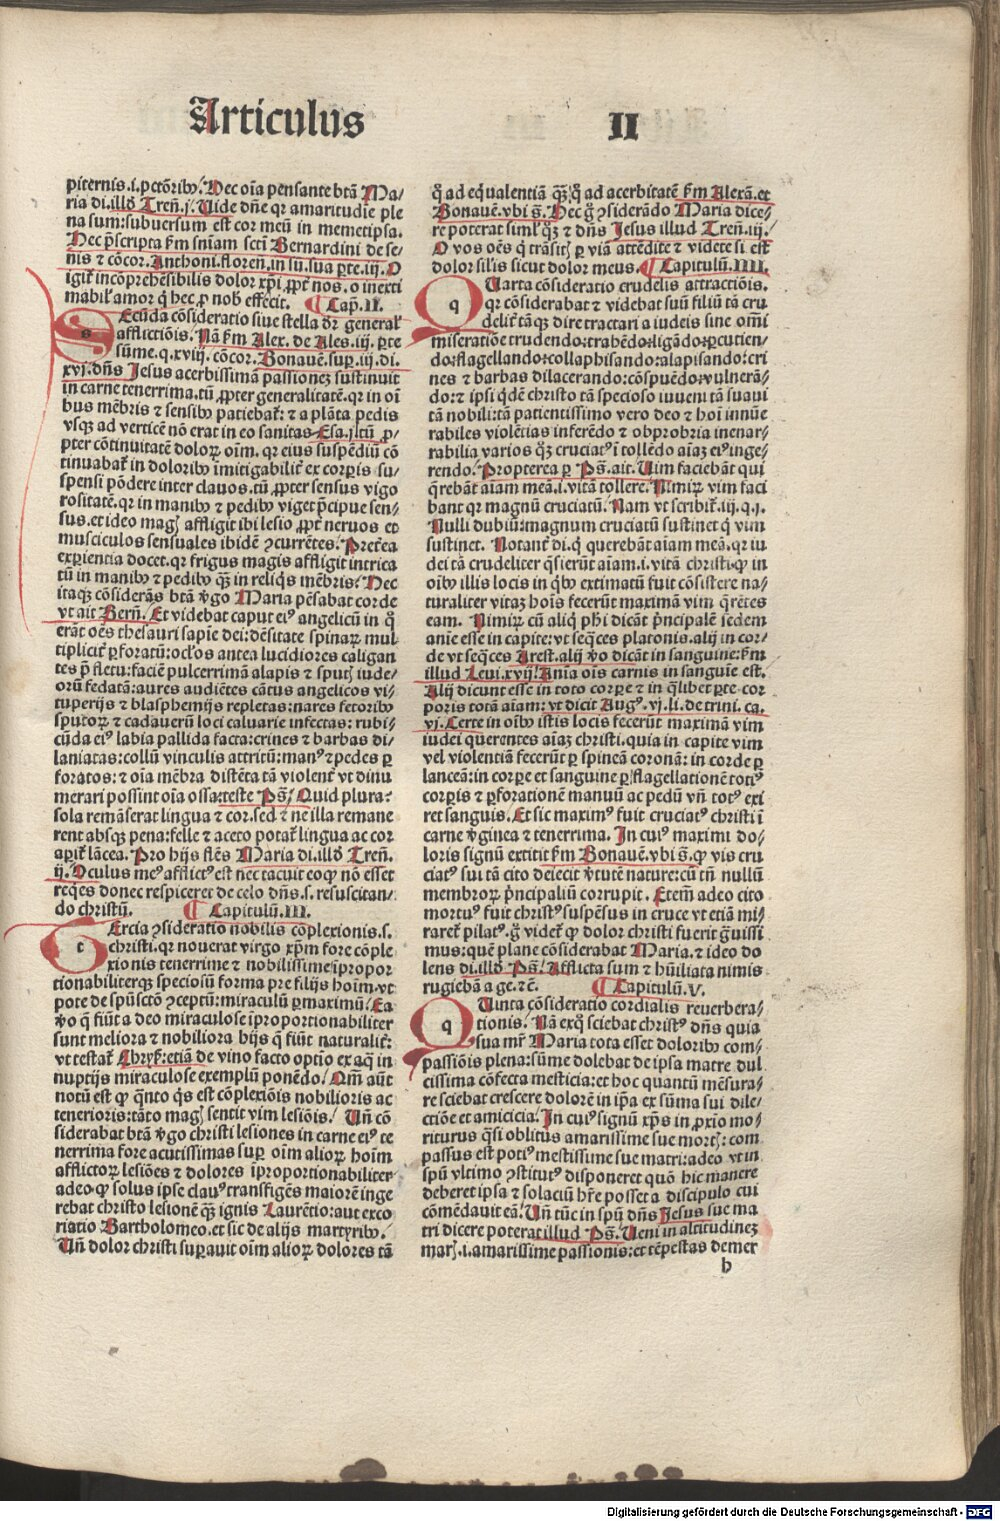 Articulus II
piternis.i.pctõribꝰ. Hec oĩa pensante btã Ma/
ria di.illđ Treñ.j. Uide dñe qr amaritudĩe ple
na sum: subuersum est cor meũ in memetipsa.
Hec p̃scripta ẜm sniam sctĩ Bernardini de se/
nis ⁊ cõcor. Anthoni. floreñ. in sũ. sua ꝑte. iij. O
igit̃ incõprehẽsibilis dolor xp̃i ꝓpt̃ nos. o inexti
mabil̃ amor q̃ hec ꝓ nob̃ effecit. ¶ Cap̃.II.
SEcũda cõsideratio siue stella dr̃ general̃
afflictiõis. Nã ẜm Alex. de Ales. iij. ꝑte
sũme. q. xviij. cõcor. Bonauẽ. suꝑ. iij. di.
xvj. dñs Jesus acerbissimã passionez sustinuit
in carne tenerrima. tũ ꝓpter generalitatẽ. qr in oĩ
bus mẽbris ⁊ sensibꝰ patiebat̃: ⁊ a plãta pedis
vsqꝫ ad verticẽ nõ erat in eo sanitas Esa.j. tũ ꝓ/
pter cõtinuitatẽ dolorꝝ oĩm. qr eius suspẽdiũ cõ
tinuabat̃ in doloribꝰ ĩmitigabilit̃ ex corꝑis su/
spensi põdere inter clauos. tũ ꝓpter sensus vigo
rositatẽ. qr in manibꝰ ⁊ pedibꝰ viget p̃cipue sen/
sus. et ideo magꝭ affligit ibi lesio ꝓpt̃ neruos et
musciculos sensuales ibidẽ ꝯcurrẽtes. Preťea
exꝑientia docet. qr frigus magis affligit intrica
tũ in manibꝰ ⁊ pedibꝰ qꝫ̃ in reliq̃s mẽbris. Hec
itaqꝫ cõsiderãs btã v̊go Maria pẽsabat corde
vt ait Berñ. Et videbat caput eiꝰ angelicũ in q̃
erãt oẽs thesauri sapiẽ dei: dẽsitate spinarꝝ mul
tiplicit̃ ꝑforatũ: ocl̃os antea lucidiores caligan
tes p̃ fletu: faciẽ pulcerrimã alapis ⁊ sputꝭ iude/
orũ fedatã: aures audiẽtes cãtus angelicos vi/
tuperijs ⁊ blasphemijs repletas: nares fetoribꝰ
sputorꝝ ⁊ cadauerũ loci caluarie infectas: rubi/
cũda eiꝰ labia pallida facta: crines ⁊ barbas di/
laniatas: collũ vinculis attritũ: manꝰ ⁊ pedes ꝑ
foratos: ⁊ oĩa mẽbra distẽta tã violent̃ vt dinu
merari possint oĩa ossa: teste Pš. Quid plura:
sola remãserat lingua ⁊ cor. sed ⁊ ne illa remane
rent absqꝫ pena: felle ⁊ aceto potat̃ lingua ac cor
aꝑit̃ lãcea. Pro hijs flẽs Maria di. illđ Treñ.
ij. Oculus meꝰ afflictꝰ est nec tacuit eoꝙ nõ esset
reqẽs donec respiceret de celo dñs. s. resuscitan/
do christũ. ¶ Capitulũ.III.
TErcia ꝯsideratio nobilis cõplexionis. s.
christi. qr nouerat virgo xp̃m fore cõple
xionis tenerrime ⁊ nobilissime ĩpropor
tionabiliterqꝫ speciosũ forma pre filijs hoĩm. vt
pote de spũsctõ ꝯceptũ: miraculũ ꝑmaximũ. Ea
v̊o q̃ fiũt a deo miraculose ĩproportionabiliter
sunt meliora ⁊ nobiliora hijs q̃ fiũt naturalit̃:
vt testat̃ Chryš: etiã de vino facto optĩo ex aq̃ in
nuptijs miraculose exemplũ ponẽdo. Qm̃ aũt
notũ est ꝙ q̃nto q̃s est cõplexiõis nobilioris ac
tenerioris: tãto magꝭ sentit vim lesiõis. Uñ cõ
siderabat btã v̊go christi lesiones in carne eiꝰ te
nerrima fore acutissimas suꝑ oĩm aliorꝝ hoĩm
afflictorꝝ lesiões ⁊ dolores ĩproportionabiliter
adeo ꝙ solus ipse clauꝰ transfigẽs maiorẽ inge
rebat christo lesionẽ qꝫ̃ ignis Laurẽtio: aut exco
riatio Bartholomeo. et sic de alijs martyribꝰ.
Uñ dolor christi suꝑauit oĩm aliorꝝ dolores tã
q̃ ad eq̃ualentiã qꝫ̃ q̃ ad acerbitatẽ ẜm Alexã. et
Bonauẽ. vbi š. Hec g̊ ꝯsiderãdo Maria dice/
re poterat simľ qꝫ̃ ⁊ dñs Jesus illud Treñ.ij.
O vos oẽs q̃ trãsit̃ ꝑ viã attẽdite ⁊ videte si est
dolor sil̃is sicut dolor meus. ¶ Capitulũ.IIII.
QUarta cõsideratio crudelis attractiõis.
qr cõsiderabat ⁊ videbat suũ filiũ tã cru
delit̃ tãqꝫ dire tractari a iudeis sine oĩmi
miseratiõe trudendo: trahẽdo: ligãdo: ꝑcutien/
do: flagellando: collaphisando: alapisando: cri
nes ⁊ barbas dilacerando: cõspuẽdo: vulnerã/
do: ⁊ ipsi q̃dẽ christo tã specioso iuueni tã suaui
tã nobili: tã patientissimo vero deo ⁊ hoĩ innũe
rabiles violẽtias inferẽdo ⁊ obprobria inenar/
rabilia varios qꝫ̃ cruciatꝰ ĩ tollẽdo aĩaz eiꝰ inge/
rendo. Propterea ꝑ Pš. ait. Uim faciebãt qui
q̃rebãt aĩam meã. i. vitã tollere. Nimirꝝ vim faci
bant qr magnũ cruciatũ. Nam vt scribit̃. iij. q. j.
Nulli dubiũ: magnum cruciatũ sustinet q̃ vim
sustinet. Notant̃ di. q̃ querebãt aĩam meã. qr iu
dei tã crudeliter q̃sierũt aĩam. i. vitã christi. ꝙ in
oĩbꝰ illis locis in q̃bꝰ extimatũ fuit cõsistere na/
turaliter vitaz hoĩs fecerũt maximã vim q̃rẽtes
eam. Nimirꝝ cũ aliq̃ phi dicãt p̃ncipalẽ sedem
anĩe esse in capite: vt seq̃ces platonis. alij in cor/
de vt seq̃ces Arest. alij v̊o dicãt in sanguine: ẜm
illud Leui. xvij. Anĩa oĩs carnis in sanguĩe est.
Alij dicunt esse in toto corꝑe ⁊ in q̃libet ꝑte cor
poris totã aĩam: vt dicit Augꝰ. vj. li. de trini. ca.
vj. Certe in oĩbꝰ istis locis fecerũt maximã vim
iudei querentes aĩaz christi. quia in capite vim
vel violentiã fecerũt ꝑ spineã coronã: in corde ꝑ
lanceã: in corꝑe et sanguine ꝑ flagellationẽ totiꝰ
corꝑis ⁊ ꝑforationẽ manuũ ac pedũ vñ totꝰ exi
ret sanguis. Et sic maximꝰ fuit cruciatꝰ christi ĩ
carne v̊ginea ⁊ tenerrima. In cuiꝰ maximi do/
loris signũ extitit ẜm Bonauẽ. vbi š. ꝙ vis cru
ciatꝰ sui tã cito deiecit v̊tutẽ nature: cũ tñ nullũ
membrorꝝ p̃ncipaliũ corrupit. Etem̃ adeo cito
mortuꝰ fuit christꝰ suspẽsus in cruce vt etiã mi/
raret̃ pilatꝰ. g̊ videt̃ ꝙ dolor christi fuerit g̃uissi
mus: quẽ plane cõsiderabat Maria. ⁊ ideo do
lens di. illđ Pš. Afflicta sum ⁊ hũiliata nimis
rugiebã a ge. ⁊ ẽ. ¶ Capitulũ.V.
QUinta cõsideratio cordialis reuerbera/
tionis. Nã exq̃ sciebat christꝰ dñs quia
sua mr̃ Maria tota esset doloribꝰ com/
passiõis plena: sũme dolebat de ipsa matre dul
cissima cõfecta mesticia: et hoc quantũ mẽsura/
re sciebat crescere dolorẽ in ip̃a ex sũma sui dile/
ctiõe et amicicia. In cuiꝰ signũ xp̃s in ꝓxio mo/
riturus q̃si oblitus amarissime sue mortꝭ: com
passus est potiꝰ mestissime sue matri: adeo vt in
spũ vltimo ꝯstitutꝰ disponeret quõ hic manere
deberet ipsa ⁊ solaciũ hr̃e posset a discipulo cui
cõmẽdauit eã. Uñ tũc in spũ dñs Jesus sue ma
tri dicere poterat illud Pš. Ueni in altitudinez
marꝭ. i. amarissime passionis: et tẽpestas demer
b
Digitalisierung gefördert durch die Deutsche Forschungsgemeinschaft - DFG